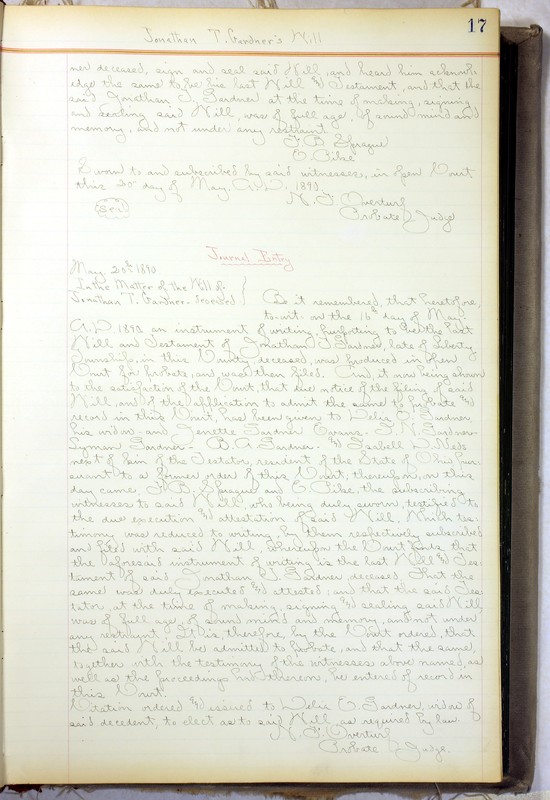 17
Jonathan T. Gardner's Will
ner deceased, sign and seal said Will, and hear him acknowl
edge the same to be his last Will & Testament, and that the
said Jonathan T. Gardner at the time of making, signing
and sealing said Will, was of full age, of sound mind and
memory, and not under any restraint.
F. B. Sprague
E. Pike
Sworn to and subscribed by said witnesses, in open Court
this 20" day of May, A.D. 1890.
N. F. Overturf
Probate Judge
Seal
Journal Entry
May 20th 1890
In the Matter of the Will of
Jonathan T. Gardner. Deceased
Be it remembered, that heretofore,
to-wit- on the 16th day of May,
A.D. 1890 an instrument of writing purporting to be the Last
Will and Testament of Jonathan T. Gardner, late of Liberty
Township, in this County deceased, was produced in open
Court for probate, and was then filed. And, it now being shown
to the satisfaction of the Court, that due notice of the filing of said
Will, and of the application to admit the same to probate &
record in this Court, has been given to Delia E. Gardner,
his widow- and Jenette Gardner Evans- F. N. Gardner-
Lyman Gardner- B. A. Gardner- & Isabell
next of kin of the Testator, resident of the State of Ohio pur-
suant to a former order of this Court; thereupon, on this
day came F. B. Sprague and E. Pike, the subscribing
witnesses to said Will, who being duly sworn, testified to
the due execution & attestation of said Will. Which tes-
timony was reduced to writing, by them respectively subscribed
and filed with said Will. Whereupon the Court finds that
the aforesaid instrument of writing is the last Will & Tes-
tament of said Jonathan T. Gardner, deceased. That the
same was duly executed & attested; and that the said Tes-
tator, at the time of making, signing & sealing said Will,
was of full age, of sound mind and memory, and not under
any restraint. It is, therefore, by the Court ordered, that
the said Will be admitted to probate, and that the same,
together with the testimony of the witnesses above named, as
well as the proceedings had therein, be entered of record in
this Court.
Citation ordered & issued to Delia E. Gardner, widow of
said decedent, to elect as to said Will, as required by law.
N. F. Overturf
Probate Judge.